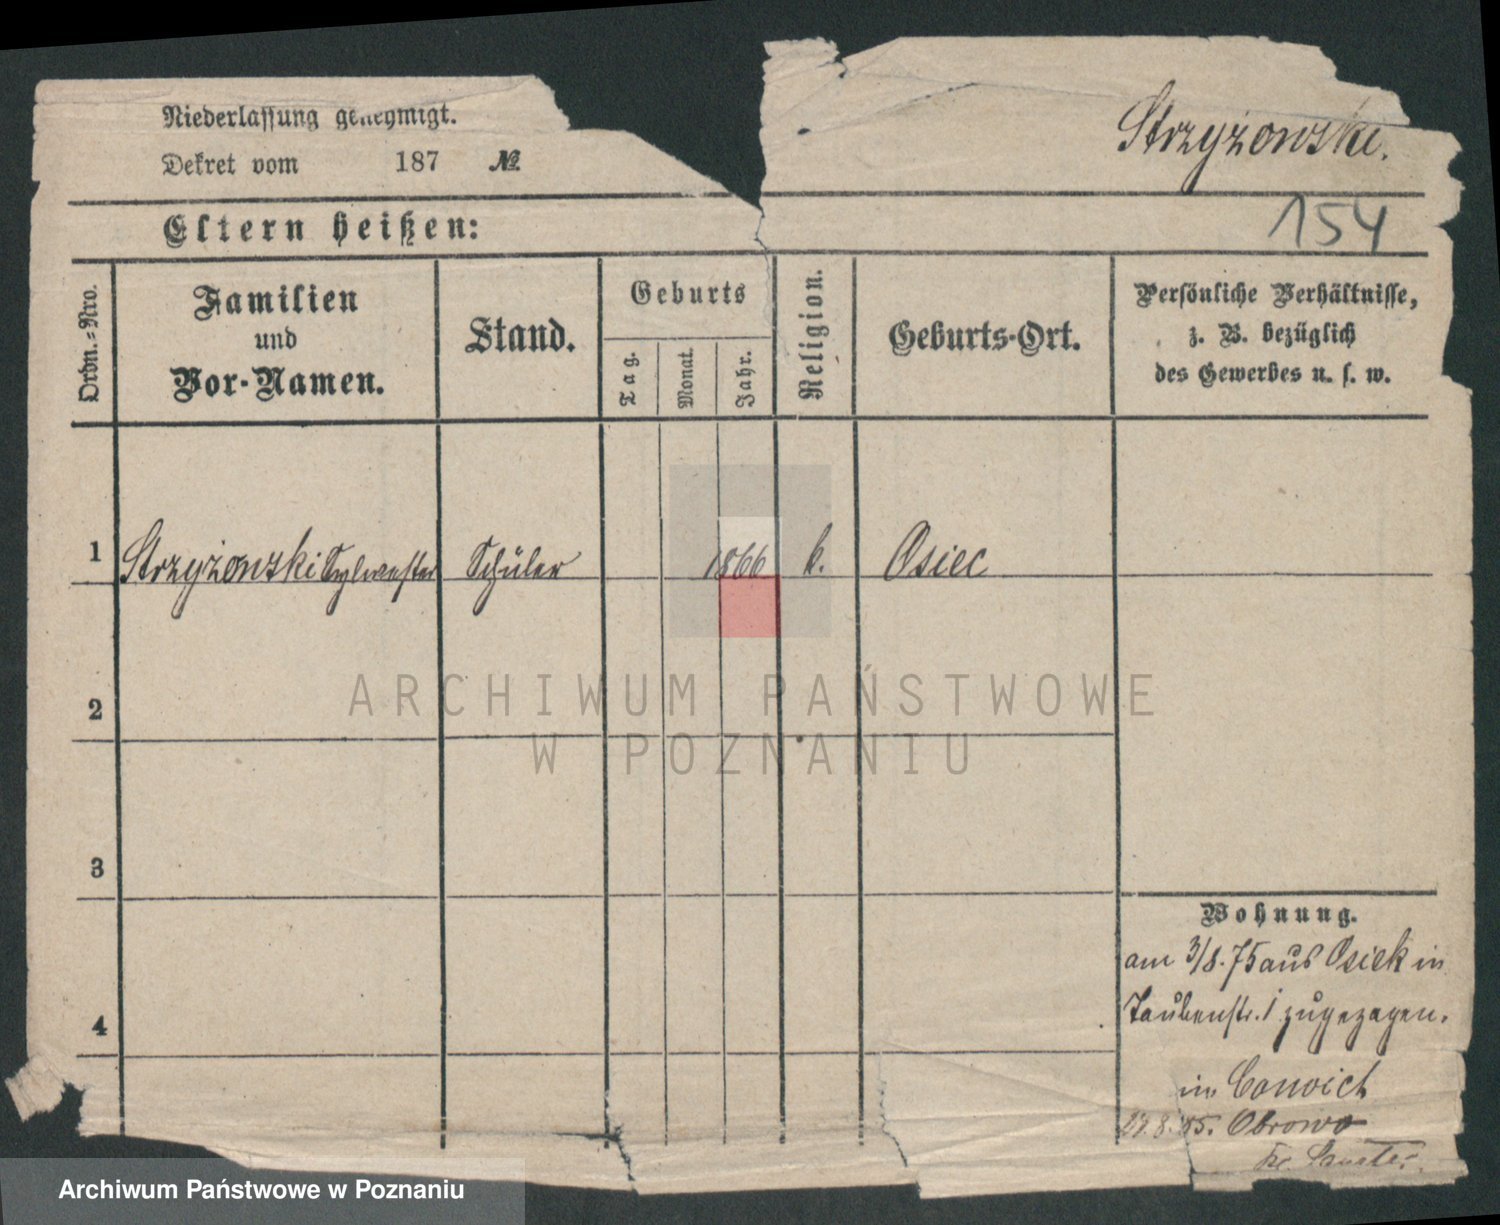 Niederlassung genehmigt.
Dekret vom 187 №
Strzyżowski.
154
Eltern heißen:
Ordn.-Nro.
Familien
und
Vor-Namen.
Stand.
Geburts
Tag.
Monat.
Jahr.
Religion.
Geburts-Ort.
Persönliche Verhältnisse,
z. B. bezüglich
des Gewerbes u. s. w.
1 Strzyżowski Sylwester Schüler 1866 k. Osiec
2
3
4
ARCHIWUM PAŃSTWOWE
W POZNANIU
Wohnung.
am 3/8.75 aus Osiek in
Taubenstr. 1 zugezogen.
im Convict
27.8.85. Obrowo
Kr. Samter.
Archiwum Państwowe w Poznaniu